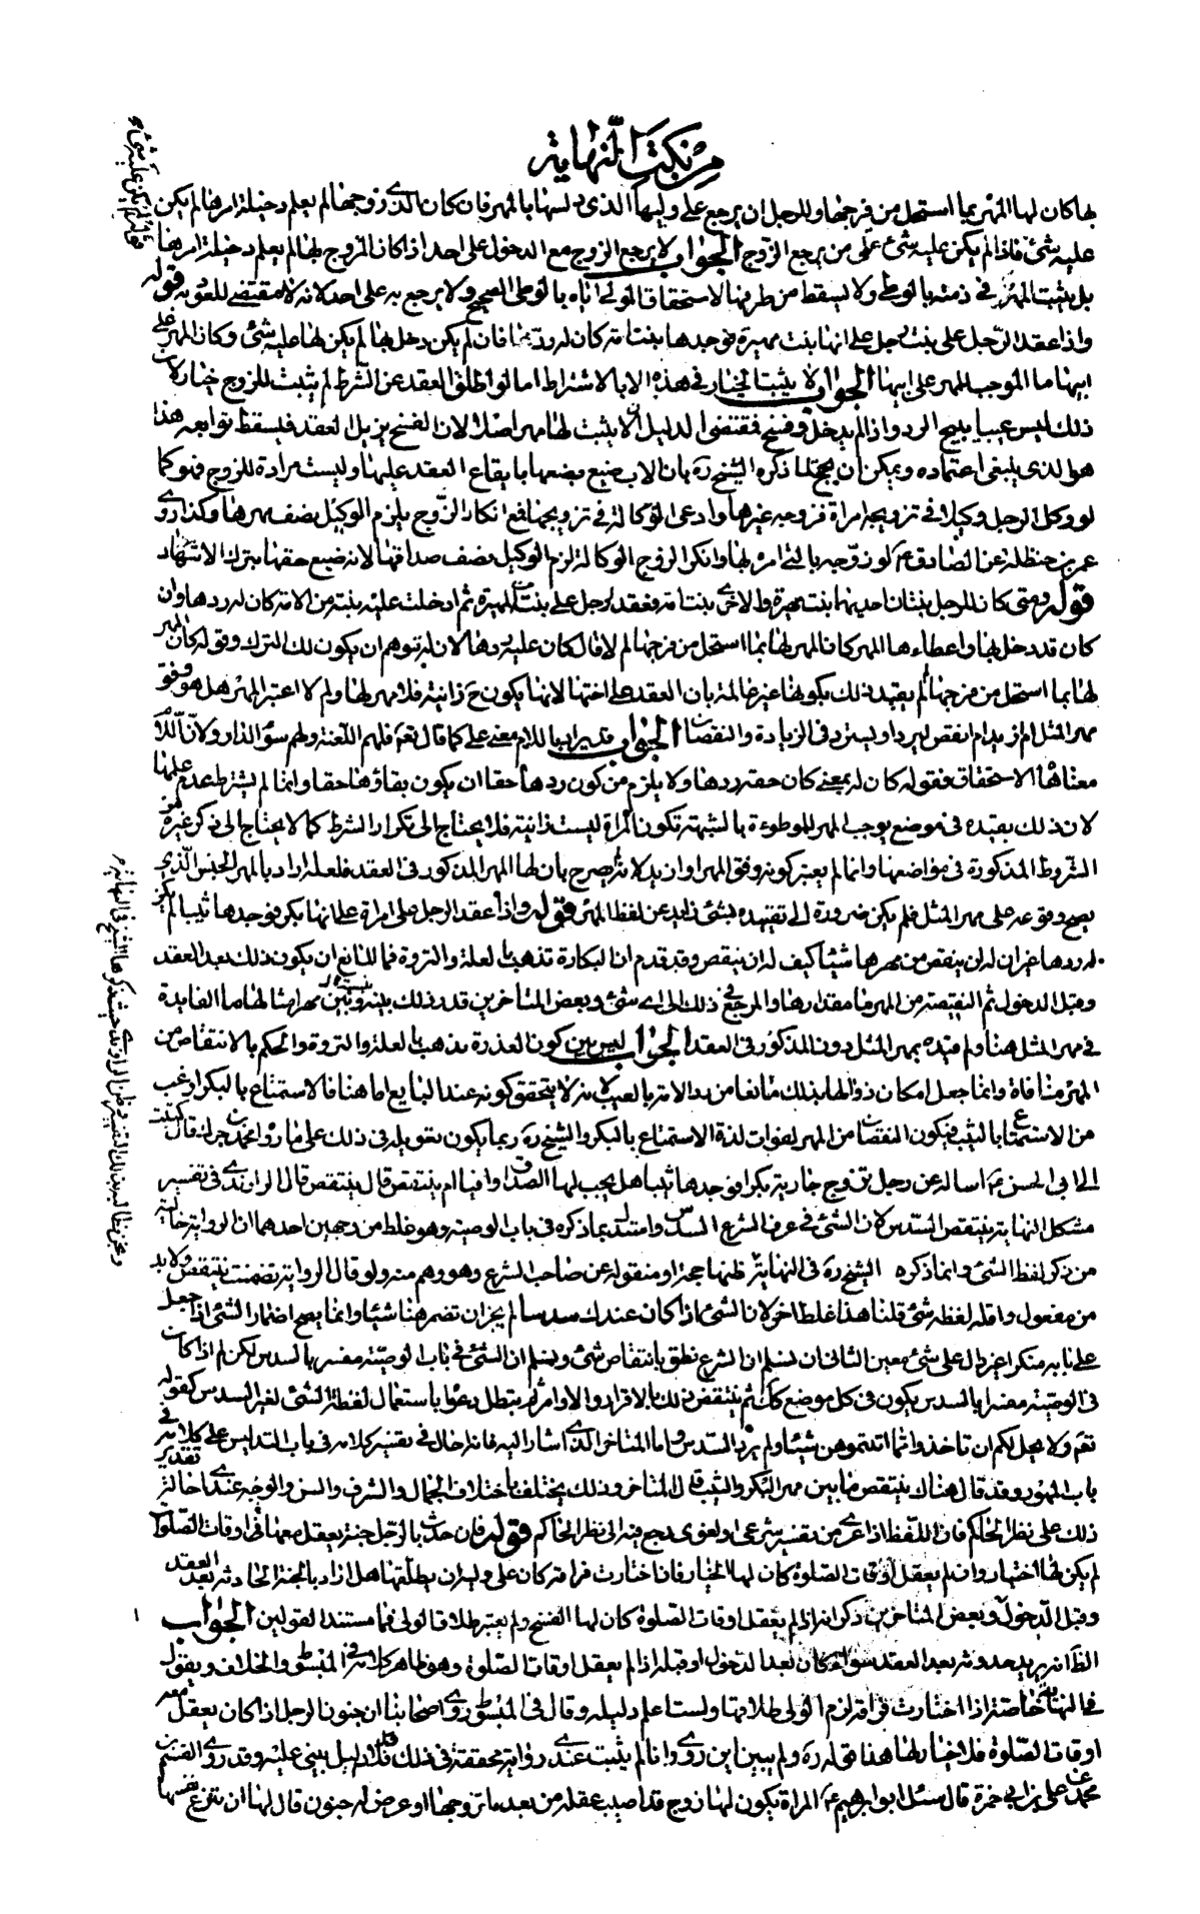 من نكت النهاية
بها كان لها المهر بما استحل من فرجها وللرجل ان يرجع على وليها الذى دلسها بالمهر فان كان الذى زوجها لم يعلم دخيلة امرها لم يكن
عليه شئ فاذا لم يكن عليه شئ على من يرجع الزوج الجواب لا يرجع الزوج مع الدخول على احد اذا كان المزوج لها لم يعلم دخيلة امرها
بل يثبت المهر في ذمته بالوطى ولا يسقط من طرفها لاستحقاق الولي اياه بالوطى الصحيح ولا يرجع به على احد لانه لا مقتضى للعود به قوله
واذا عقد الرجل على بنت رجل على انها بنت مهيرة فوجدها بنت امة كان له ردها فان لم يكن دخل بها لم يكن لها عليه شئ وكان المهر على
ابيها ما الموجب للمهر على ابيها الجواب لا يثبت الخيار في هذه الا بالاشتراط اما لو اطلق العقد عن الشرط لم يثبت للزوج خيار لان
ذلك ليس عيبا يبيح الرد واذا لم يدخل وفسخ فمقتضى الدليل ان لا يثبت لها مهر اصلا لان الفسخ يزيل العقد فيسقط توابعه هذا
هو الذى ينبغى اعتماده ويمكن ان يحتج لما ذكره الشيخ ره بان الاب ضيع بضعها بايقاع العقد عليها وليست مرادة للزوج فهو كما
لو وكل الرجل وكيلا في تزويجه امراة فزوجه غيرها وادعى الوكالة في تزويجها فمع انكار الزوج يلزم الوكيل نصف مهرها وكذا روى
عمر بن حنظلة عن الصادق ع لو زوجه بالتى امر لها وانكر الزوج الوكالة لزم الوكيل نصف صداقها لانه ضيع حقها بترك الاشهاد
قوله ومتى كان للرجل بنتان احديهما بنت مهيرة والاخرى بنت امة فعقد لرجل على بنت المهيرة ثم ادخلت عليه بنته من الامة كان له ردها وان
كان قد دخل بها واعطاها المهر كان المهر لها بما استحل من فرجها لم لا قال كان عليه ردها لان له توهم ان يكون لك الترك وقوله كان المهر
لها بما استحل من فرجها لم يقيد ذلك بكونها غير عالمة بان العقد على اختها لانها يكون ح زانية فلا مهر لها ولم لا اعتبر المهر هل هو وفق
مهر المثل ام ازيد ام انقص ليرد او يسترد في الزيادة والنقصان الجواب اللام بمعنى على كما قال تعم فلهم اللعنة ولهم سوء الدار ولان اللام
معناها الاستحقاق فقوله كان له بمعنى كان حقه ردها ولا يلزم من كون ردها حقا ان يكون بقاؤها حقا وانما لم يشترط عدم علمها
لان ذلك يقيده في موضع يوجب المهر للموطوءة بالشبهة تكون المراة ليست زانية فلا يحتاج الى تكرار الشرط كما لا يحتاج الى ذكر غيره من
الشروط المذكورة في مواضعها وانما لم يعتبر كونه وفق المهر او ازيد لانه يصرح بان لها المهر المذكور في العقد فلعله اراد بالمهر الجنس الذى
يصح وقوعه على مهر المثل فلم يكن ضرورة الى تقييده بشئ زايد عن لفظ المهر قوله واذا عقد الرجل على امراة على انها بكر فوجدها ثيبا لم يكن
له ردها غير ان له ان ينقص من مهرها شيئا كيف له ان ينقص وقد قدم ان البكارة تذهب بالعلة والنزوة فما المانع ان يكون ذلك بعد العقد
وقبل الدخول ثم النقيصة من المهر ما مقدارها والمرجع في ذلك الى اى شئ وبعض المتاخرين قدر ذلك بينه وبين مهر امثالها ما الفايدة
في مهر المثل هنا ولم قيده بمهر المثل دون المذكور في العقد الجواب ليس بين كون العذرة تذهب بالعلة والنزوة والحكم بالانتقاص من
المهر منافاة وانما جعل امكان زوالها بذلك مانعا من رد الامة بالعيب لانه لا يتحقق كونه عند البايع اما هنا فالاستمتاع بالبكر ارغب
من الاستمتاع بالثيب فيكون النقصان من المهر لفوات لذة الاستمتاع بالبكر والشيخ ره ربما يكون تعويله في ذلك على ما رواه محمد بن جزك قال كتبت
الى ابى الحسن ع اساله عن رجل تزوج جارية بكرا فوجدها ثيبا هل يجب لها الصداق وافيا ام ينتقص قال ينتقص قال الراوندى في تفسير
مشكل النهاية ينتقص السدس لان الشئ في عرف الشرع السدس واستدل بما ذكره في باب الوصية وهو غلط من وجهين احدهما ان الرواية خالية
من ذكر لفظ الشئ وانما ذكره الشيخ ره في النهاية ظنها حجة او منقوله عن صاحب الشرع وهو وهم منه ولو قال الرواية تضمنت ينتقص ولا بد
من مفعول واقله لفظه شئ قلنا هذا غلط اخر لان الشئ اذا كان عندك سدسا لم يجز ان تضمر هنا شيئا وانما يصح اضمار الشئ اذا جعل
على بابه منكرا غير دال على شئ معين الثانى ان نسلم ان الشرع نطق بانتقاص شئ ونسلم ان الشئ في باب الوصية مفسر بالسدس لكن لم اذا كان
في الوصية مفسرا بالسدس يكون في كل موضع كك ثم ينتقض ذلك بالاقرار والاوامر ثم يبطل دعواه باستعمال لفظة الشئ لغير السدس كقوله
تعم ولا يحل لكم ان تاخذوا مما اتيتموهن شيئا ولم يرد السدس واما المتاخر الذى اشار اليه فانه حال في تفسير كلامه في باب التدليس على كلامه في
باب المهور وقد قال هناك ينتقص ما بين مهر البكر والثيب قال المتاخر وذلك يختلف باختلاف الجمال والشرف والسن والوجه عندى احالة تقدير
ذلك على نظر الحاكم فان اللفظ اذا عرى من تفسير شرعى او لغوى رجع فيه الى نظر الحاكم قوله فان حدث بالرجل جنة يعقل معها في اوقات الصلوة
لم يكن لها اختيار وان لم يعقل اوقات الصلوة كان لها الخيار فان اختارت فراقه كان على وليه ان يطلقها هل اراد بالجنة الحادثة بعد العقد
وقبل الدخول وبعض المتاخرين ذكر انه اذا لم يعقل اوقات الصلوة كان لها الفسخ ولم يعتبر طلاق الولى فما مستند القولين الجواب
الظاهر يريد حدوثه بعد العقد سواء كان بعد الدخول او قبله اذا لم يعقل اوقات الصلوة وهو ظاهر كلامه في المبسوط والخلاف ويقول
في النهاية خاصة اذا اختارت فراقه لزم الولى طلاقها ولست اعلم دليله وقال في المبسوط روى اصحابنا ان جنون الرجل اذا كان يعقل معه
اوقات الصلوة فلا خيار لها هذا قوله ره ولم يبين اين روى وانا لم يثبت عندى رواية محققة في ذلك فلا دليل يبنى عليه وقد روى القسم بن
محمد عن على بن ابى حمزة قال سئل ابو ابراهيم ع المراة يكون لها زوج قد اصيب عقله من بعد ما تزوجها او عرض له جنون قال لها ان تنزع نفسها